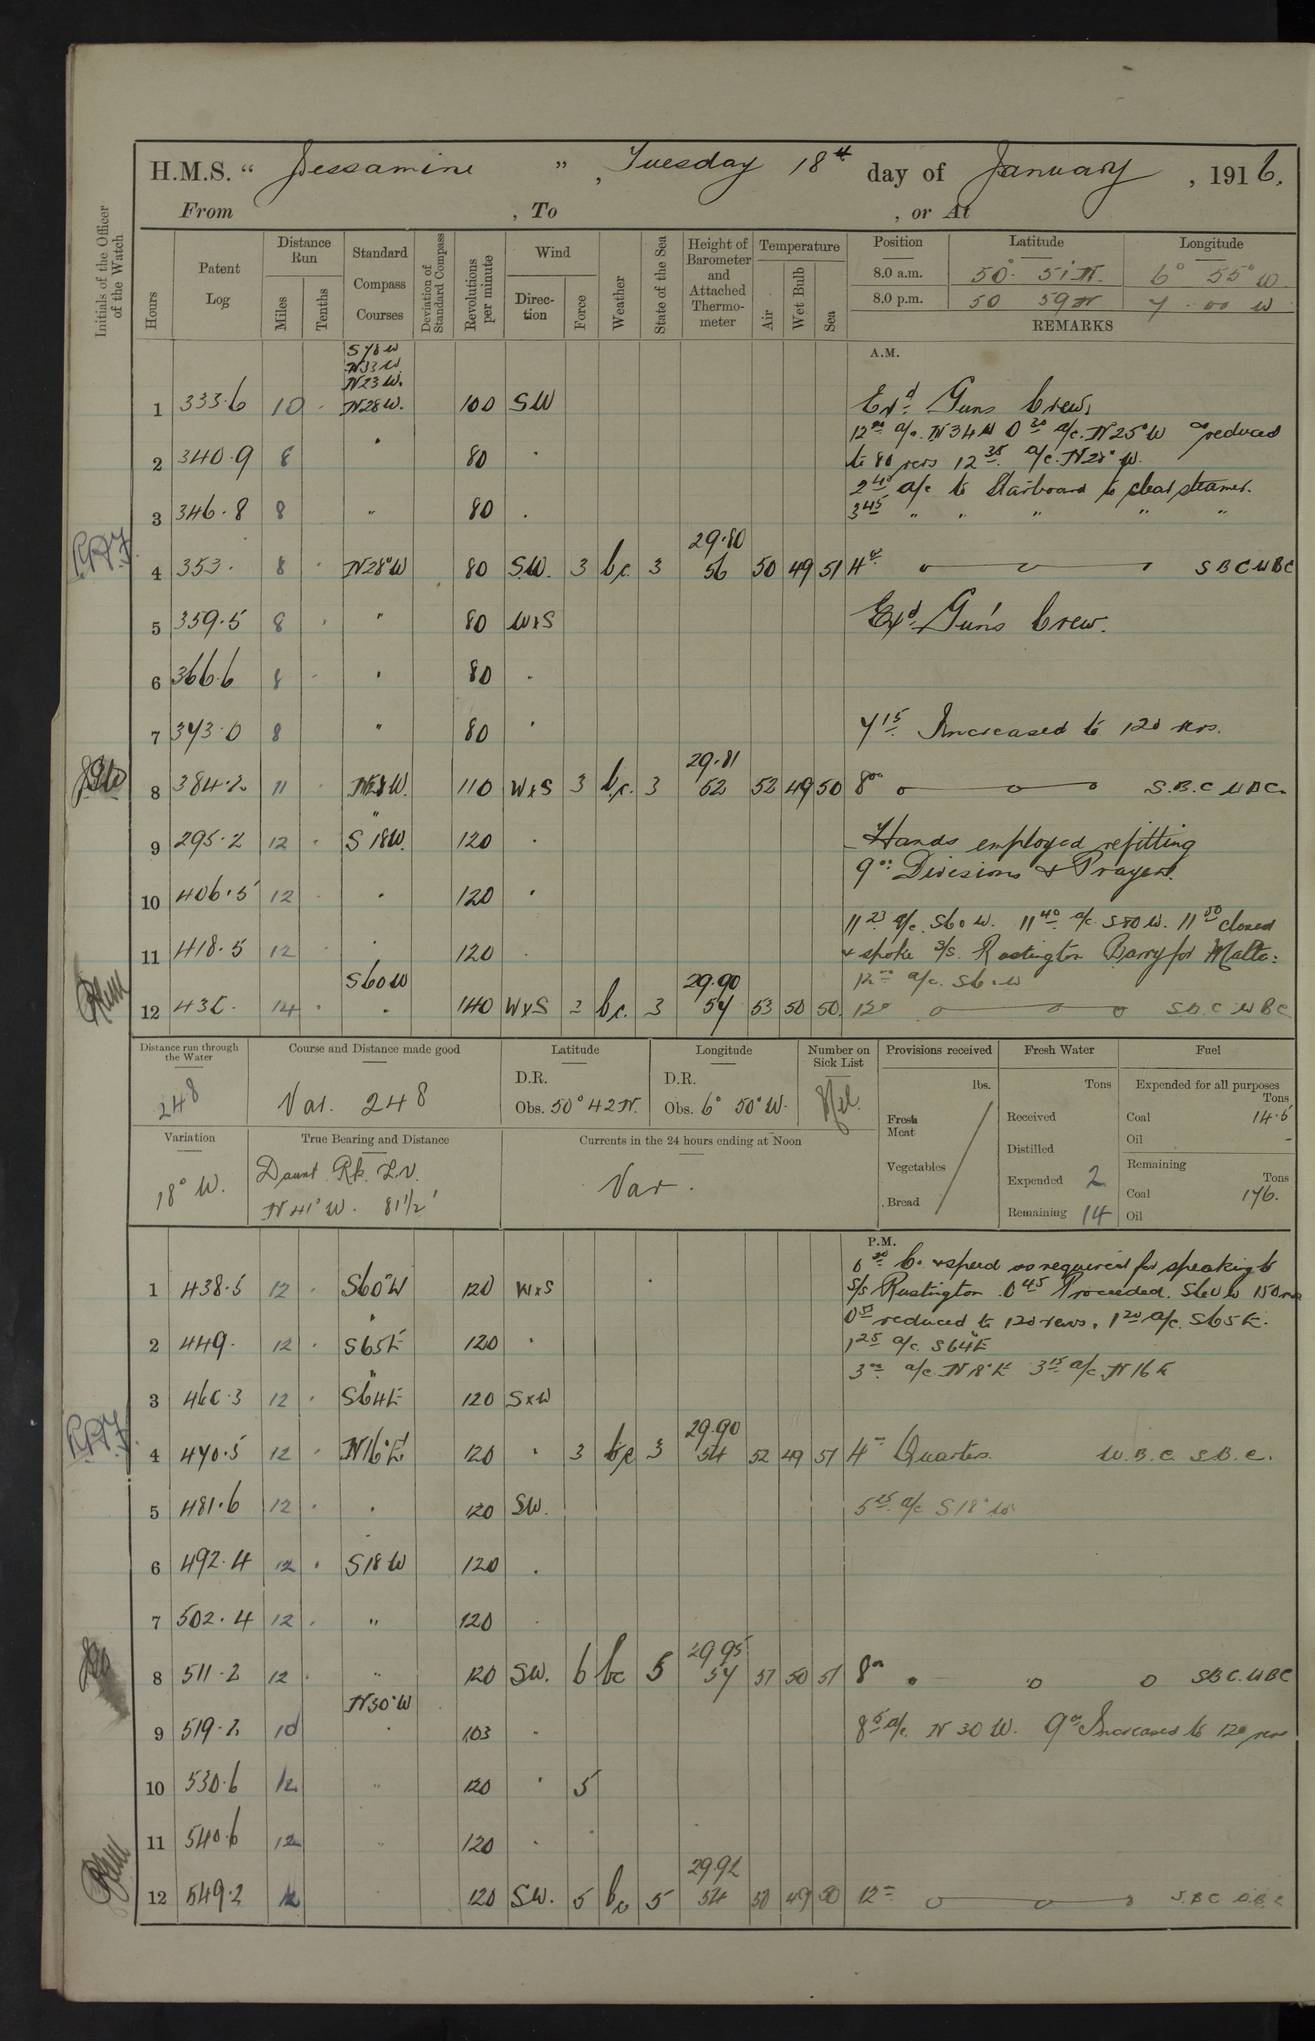 H.M.S. “ Jessamine ” , Tuesday 18th day of January , 1916.
From , To , or At
Initials of the Officer of the Watch
Hours Patent Log Distance Run Miles Tenths Standard Compass Courses Deviation of Standard Compass Revolutions per minute Wind Direction Force Weather State of the Sea Height of Barometer and Attached Thermometer Temperature Air Wet Bulb Sea Position Latitude Longitude
8.0 a.m. 50° 51' N. 6° 55° W.
8.0 p.m. 50 59 N 7 00 W
REMARKS
A.M.
S78W
N33W
N23W.
1 333.6 10 N28W. 100 SW Exd. Guns Crews
12 00 a/c. N34W 0 30 a/c. N25°W reduced
2 340.9 8 " 80 " to 80 revs 12 35 a/c. N28°W.
2 40 a/c to Starboard to clear steamer.
3 346.8 8 " 80 . 3 45 " " " " "
29.80
4 353. 8 N28°W 80 SW. 3 b.c. 3 56 50 49 51 4 00 SBC WBC
5 359.5 8 " 80 WxS Exd. Gun's Crew.
6 366.6 8 " 80 .
7 373.0 8 " 80 " 7 15 Increased to 120 revs.
29.81
8 384.2 11 N28W. 110 WxS 3 b.c. 3 52 52 49 50 8 00 S.B.C WBC.
"
9 295.2 12 S18W. 120 . Hands employed refitting
9 00 Divisions & Prayers.
10 406.5 12 " 120 "
11 23 a/c. S60W. 11 40 a/c S80W. 11 50 closed
11 418.5 12 . 120 . & spoke S/S. Rustington Barry for Malta:
S60W 29.90 12 00 a/c. S60W
12 432. 14 . 140 WxS 3 b.c. 3 54 53 50 50. 12 00 SBC WBC
Distance run through the Water
248
Course and Distance made good
Var. 248
Latitude
D.R.
Obs. 50° 42 N.
Longitude
D.R.
Obs. 6° 50' W.
Number on Sick List
Nil.
Provisions received
lbs.
Fresh Meat
Vegetables
Bread
Fresh Water
Tons
Received
Distilled
Expended 2
Remaining 14
Fuel
Expended for all purposes
Tons
Coal 14.5
Oil -
Remaining
Tons
Coal 176.
Oil
Variation
18° W.
True Bearing and Distance
Daunt Rk. L.V.
N41°W. 81½'
Currents in the 24 hours ending at Noon
Var.
P.M.
0 30 Co. & speed as required for speaking to
1 438.5 12 S60°W 120 WxS S/S Rustington. 0 45 Proceeded. S60W 150 revs
reduced to 120 revs, 1 20 a/c. S65E.
2 449. 12 S65E 120 " 1 25 a/c. S64E
3 00 a/c. N18°E 3 15 a/c. N16E
3 460.3 12 S64E 120 SxW
29.90
4 470.5 12 N16°E 120 " 3 b.c 3 54 52 49 51 4 00 Quarters. W.B.C. S.B.C.
5 481.6 12 . 120 SW. 5 25 a/c S18°W
6 492.4 12 S18W 120 .
7 502.4 12 " 120 .
29.95
8 511.2 12 " 120 SW. 6 bc 5 54 51 50 51 8 00 SBC. WBC
N30°W
9 519.2 10 " 103 " 8 5 a/c. N30W. 9 00 Increased to 120 revs
10 530.6 12 " 120 " 5
11 540.6 12 " 120 "
29.92
12 549.2 12 120 SW. 5 bc 5 54 50 49 50 12 00 S.B.C